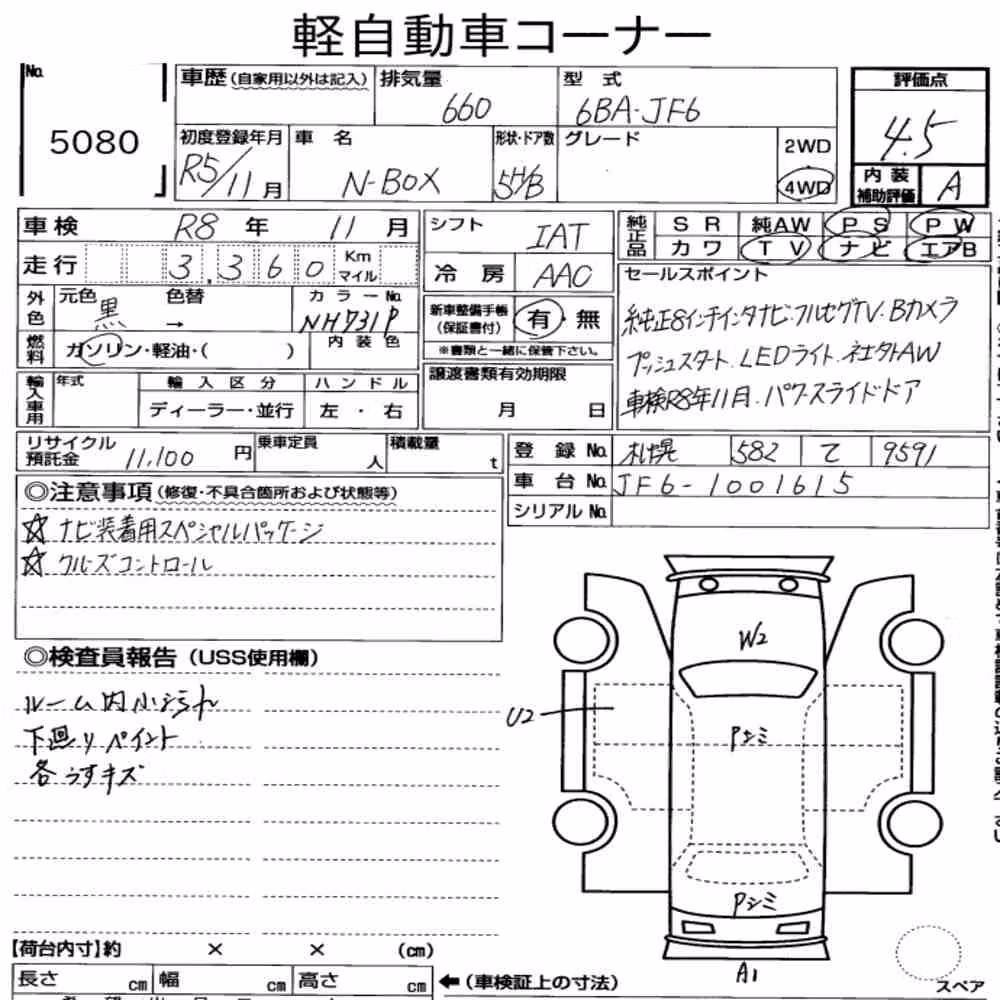 軽自動車コーナー
No.
5080
車歴(自家用以外は記入) 排気量 型式
660 6BA-JF6
初度登録年月 車名 形状・ドア数 グレード
R5/11月 N-BOX 5H/B
2WD
4WD
評価点
4.5
内装補助評価 A
車検 R8年 11月
走行 3,360 Km マイル
外色 元色 色替 カラーNo.
黒 → NH731P
燃料 ガソリン・軽油・( ) 内装色
輸入車用 年式 輸入区分 ハンドル
ディーラー・並行 左・右
シフト IAT
冷房 AAC
新車整備手帳(保証書付) 有・無
※書類と一緒に保管下さい。
譲渡書類有効期限
月 日
純正品 SR 純AW PS PW
カワ TV ナビ エアB
セールスポイント
純正8インチインタナビ・フルセグTV・Bカメラ
プッシュスタート・LEDライト・社外AW
車検R8年11月・パワースライドドア
リサイクル預託金 11,100円 乗車定員 人 積載量 t
登録No. 札幌 582 て 9591
車台No. JF6-1001615
シリアルNo.
◎注意事項(修復・不具合箇所および状態等)
☆ ナビ装着用スペシャルパッケージ
☆ クルーズコントロール
◎検査員報告(USS使用欄)
ルーム内小汚れ
下廻りペイント
各うすキズ
W2
U2
Pシミ
Pシミ
A1
【荷台内寸】約 × × (cm)
長さ cm 幅 cm 高さ cm
←(車検証上の寸法)
スペア